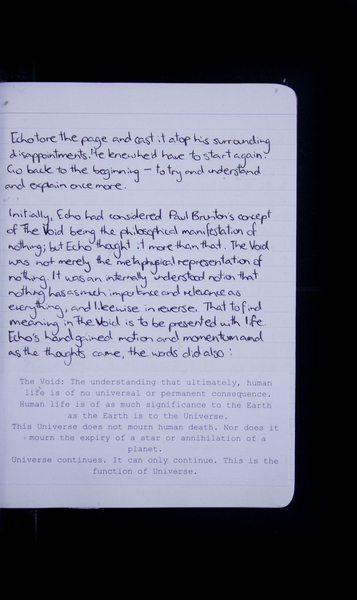 Echo tore the page and cast it atop his surrounding
disappointments. He knew he'd have to start again.
Go back to the beginning — to try and understand
and explain once more.
Initially, Echo had considered Paul Brunton's concept
of The Void being the philosophical manifestation of
nothing; but Echo thought it more than that. The Void
was not merely the metaphysical representation of
nothing. It was an internally understood notion that
nothing has as much importance and relevance as
everything, and likewise in reverse. That to find
meaning in the Void is to be presented with life.
Echo's hand gained motion and momentum and
as the thoughts came, the words did also:
The Void: The understanding that ultimately, human
life is of no universal or permanent consequence.
Human life is of as much significance to the Earth
as the Earth is to the Universe.
This Universe does not mourn human death. Nor does it
mourn the expiry of a star or annihilation of a
planet.
Universe continues. It can only continue. This is the
function of Universe.